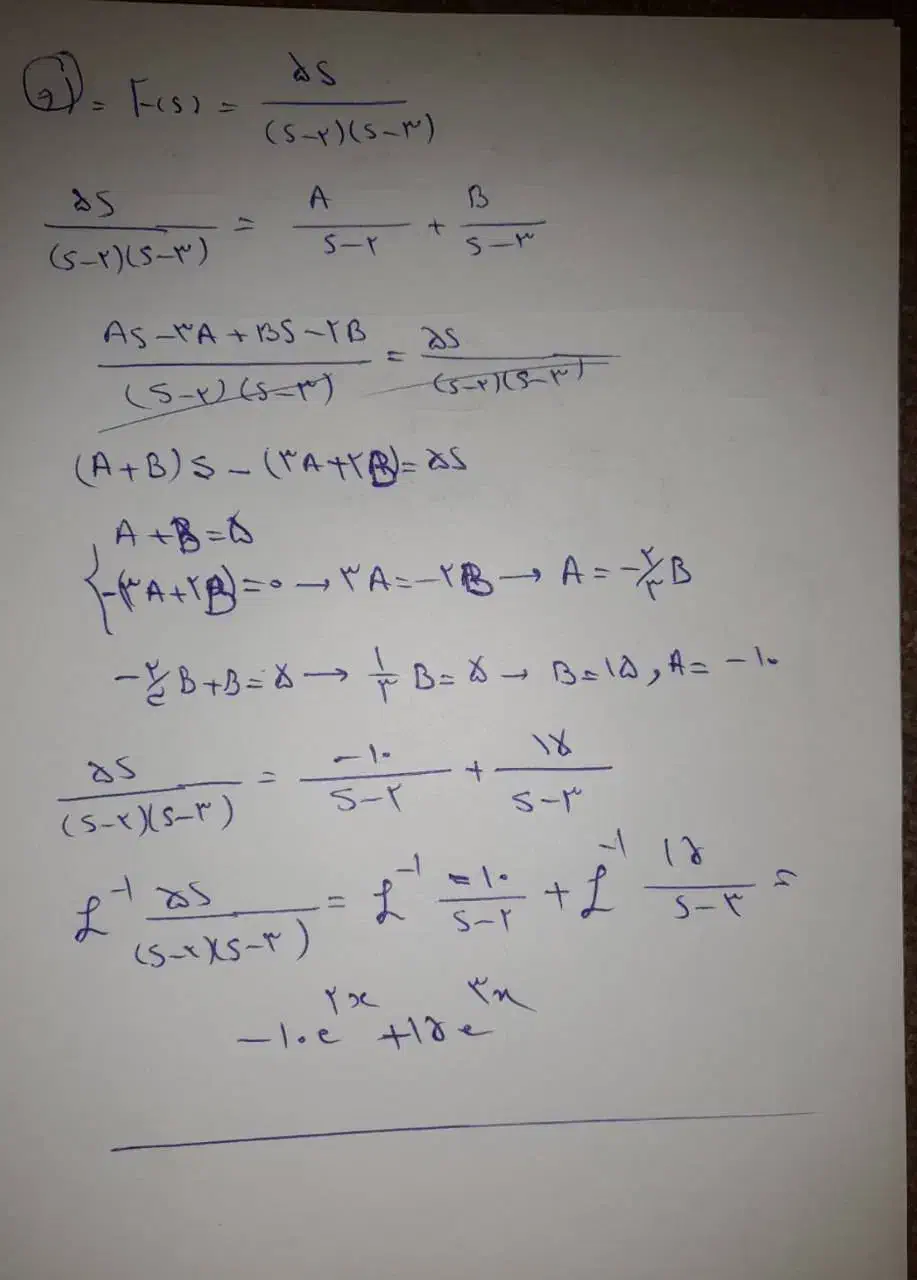 = F(s) = ۵S / (S-۲)(S-۳)
۵S / (S-۲)(S-۳) = A / S-۲ + B / S-۳
AS-۳A+BS-۲B / (S-۲)(S-۳) = ۵S / (S-۲)(S-۳)
(A+B)S-(۳A+۲B)=۵S
A+B=۵
-(۳A+۲B)=۰ → ۳A=-۲B → A=-۲/۳B
-۲/۳B+B=۵ → ۱/۳B=۵ → B=۱۵, A=-۱۰
۵S / (S-۲)(S-۳) = -۱۰ / S-۲ + ۱۵ / S-۳
£⁻¹ ۵S / (S-۲)(S-۳) = £⁻¹ -۱۰ / S-۲ + £⁻¹ ۱۵ / S-۳ =
-۱۰e^۲x +۱۵e^۳x